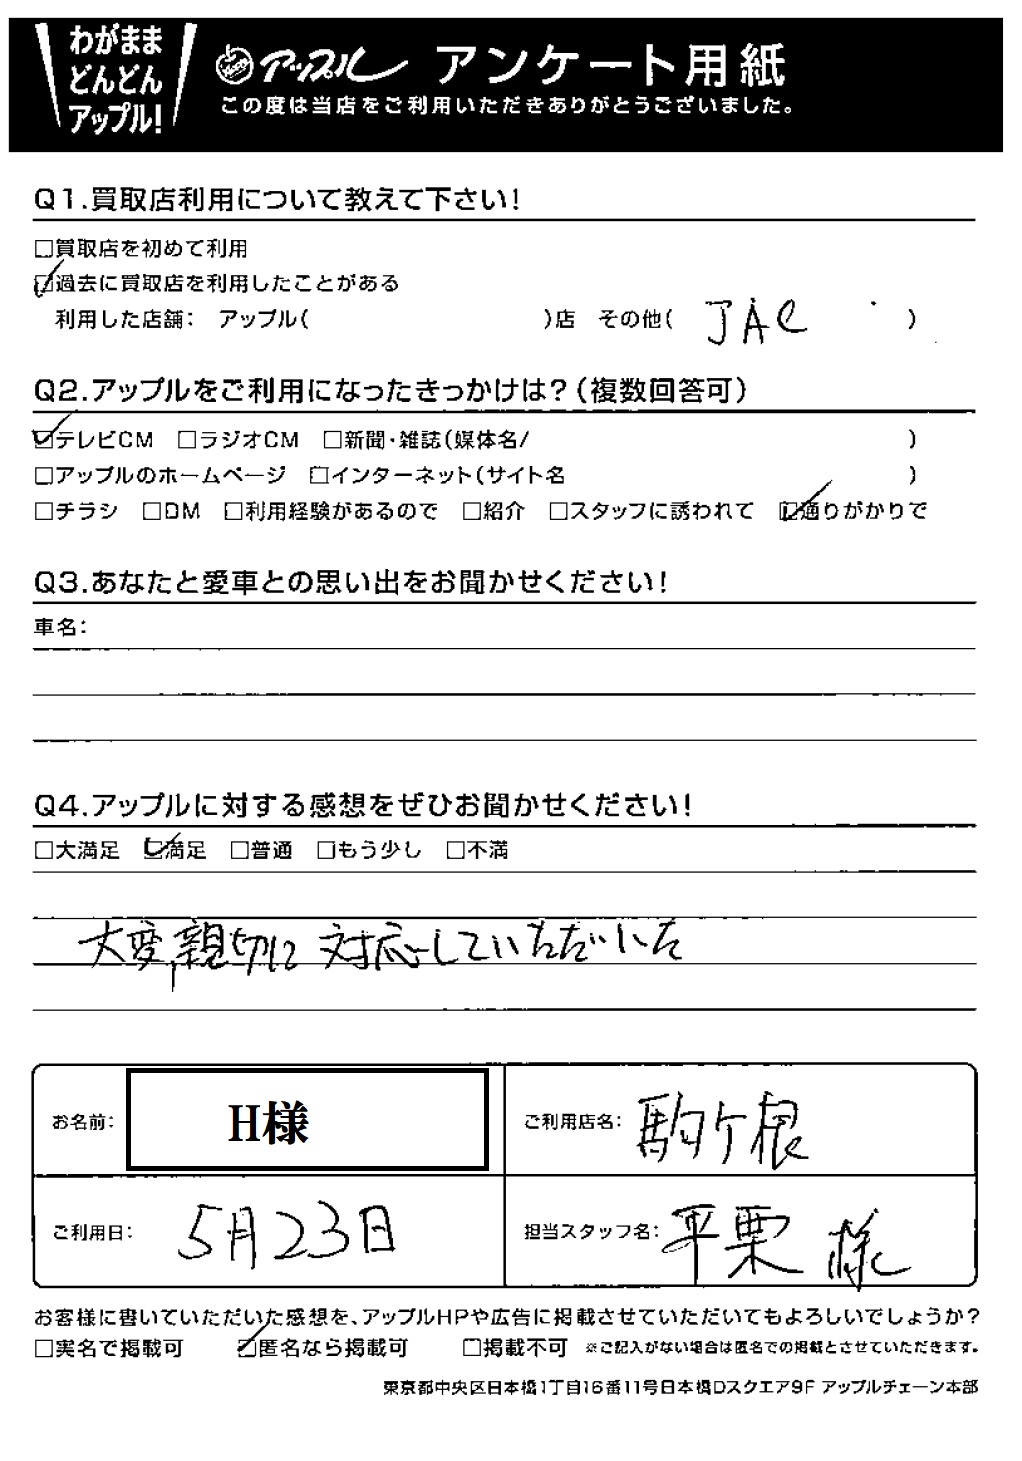 わがまま
どんどん
アップル!
アップル アンケート用紙
この度は当店をご利用いただきありがとうございました。
Q1.買取店利用について教えて下さい!
□買取店を初めて利用
☑過去に買取店を利用したことがある
利用した店舗: アップル( )店 その他( JAC )
Q2.アップルをご利用になったきっかけは?(複数回答可)
☑テレビCM □ラジオCM □新聞・雑誌(媒体名/ )
□アップルのホームページ □インターネット(サイト名 )
□チラシ □DM □利用経験があるので □紹介 □スタッフに誘われて ☑通りがかりで
Q3.あなたと愛車との思い出をお聞かせください!
車名:
Q4.アップルに対する感想をぜひお聞かせください!
□大満足 ☑満足 □普通 □もう少し □不満
大変親切に対応していただいた
お名前: H様
ご利用店名: 駒ケ根
ご利用日: 5月23日
担当スタッフ名: 平栗 様
お客様に書いていただいた感想を、アップルHPや広告に掲載させていただいてもよろしいでしょうか?
□実名で掲載可 ☑匿名なら掲載可 □掲載不可 ※ご記入がない場合は匿名での掲載とさせていただきます。
東京都中央区日本橋1丁目16番11号日本橋Dスクエア9F アップルチェーン本部